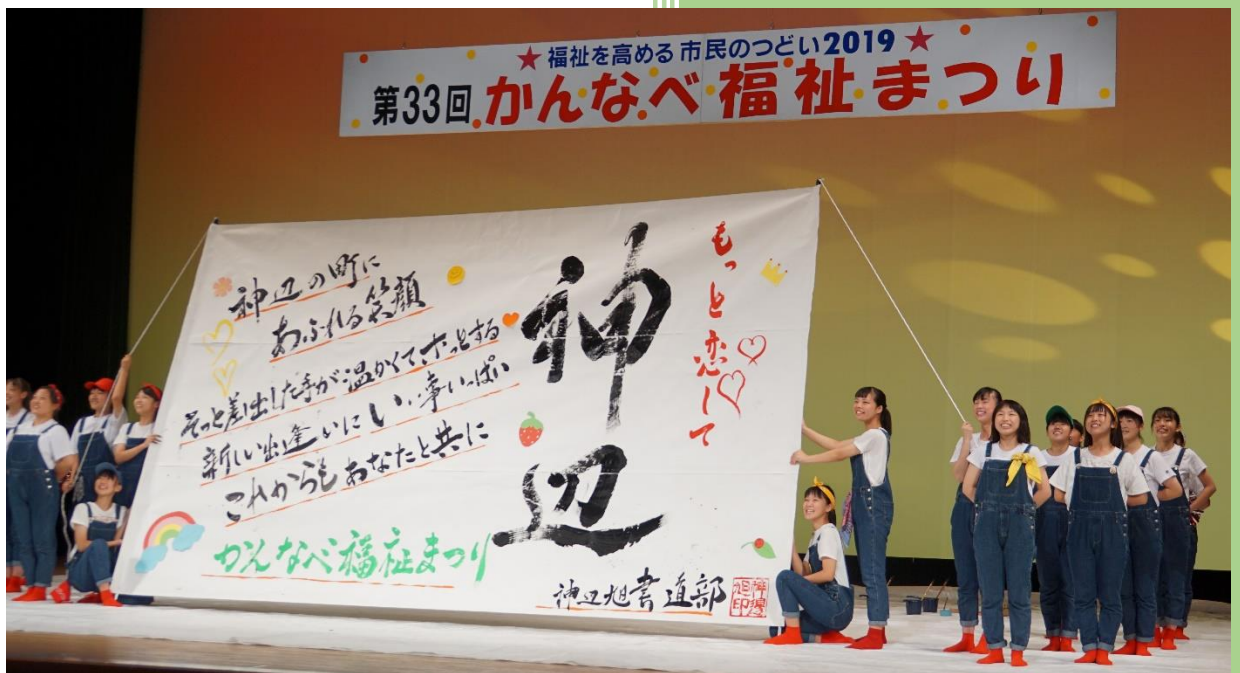 ★福祉を高める市民のつどい2019★
第33回かんなべ福祉まつり
もっと恋して
神辺
神辺の町に
あふれる笑顔
そっと差出した手が温かくてホっとする
新しい出逢いにいい事いっぱい
これからもあなたと共に
かんなべ福祉まつり
神辺旭書道部